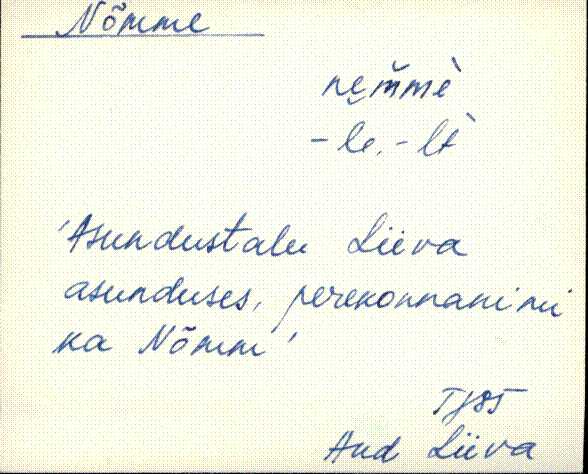 Nõmme
ne̮m̆mè
-le, -lt
'Asundustalu Liiva
asunduses, perekonnanimi
ka Nõmm'
TJ85
And Liiva